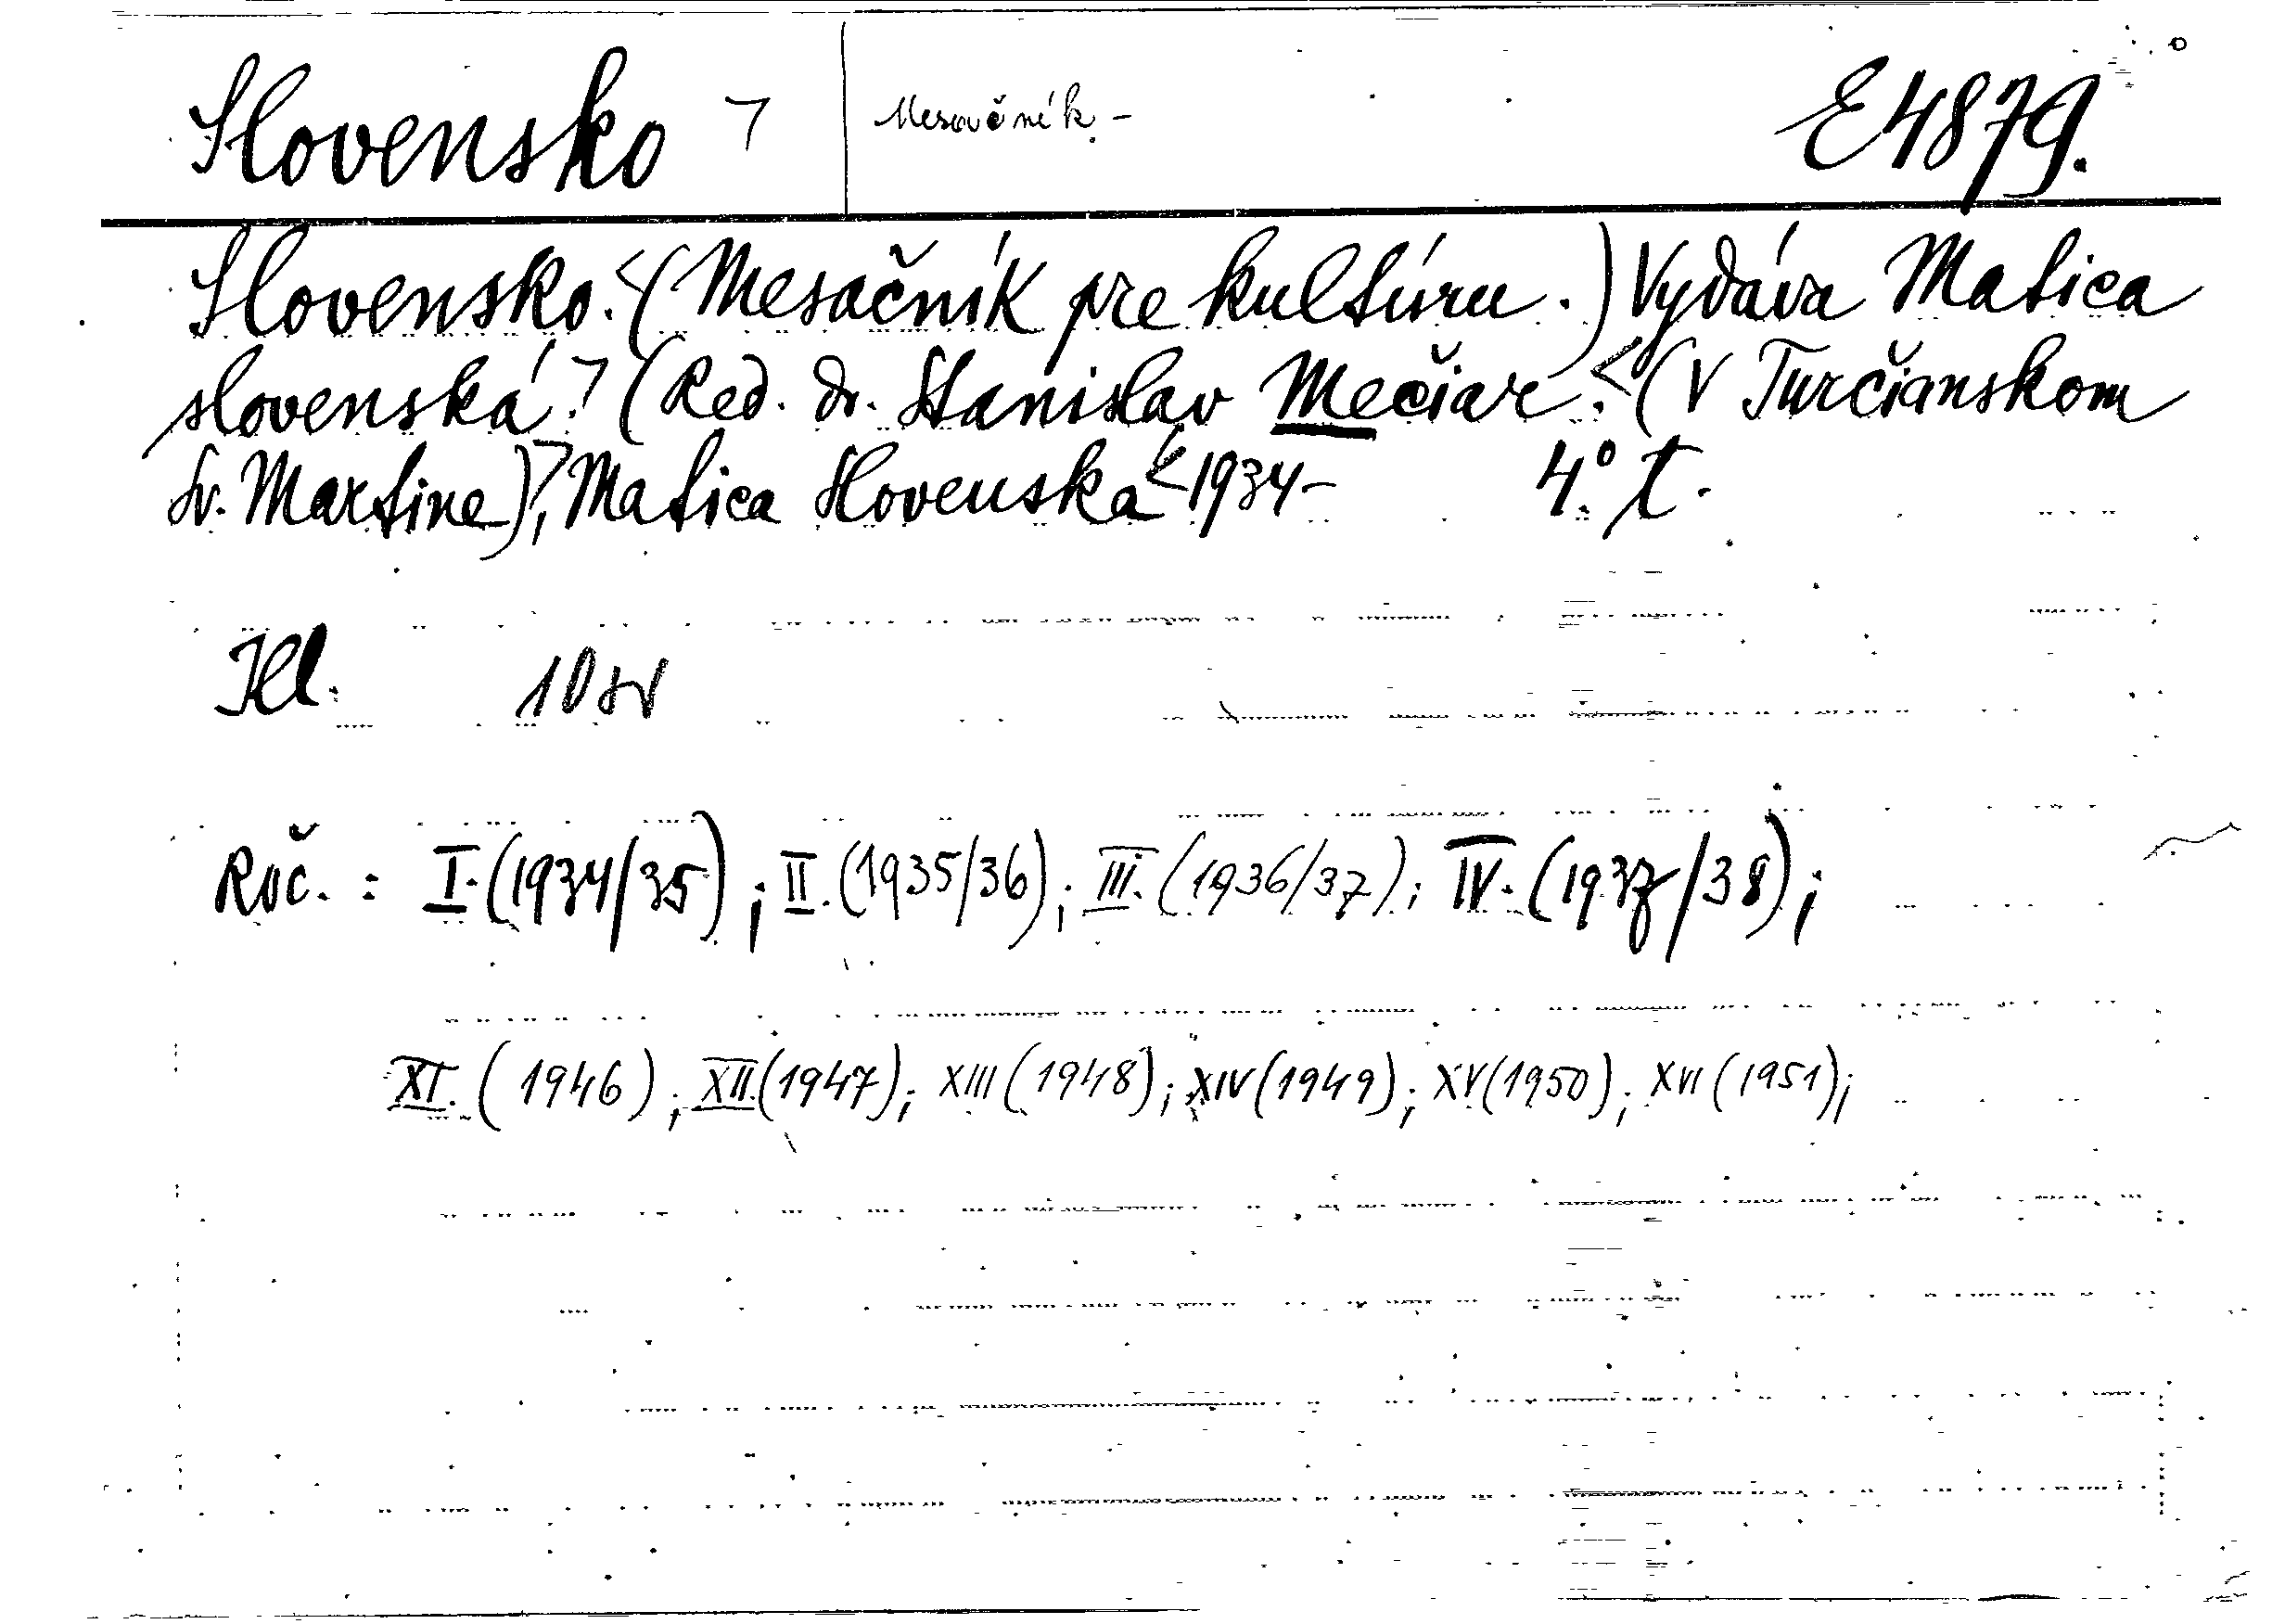 Slovensko Mesačník - E 4879.
Slovensko. (Mesačník pre kultúru.) Vydáva Matica
slovenská. (Red. dr. Stanislav Mečiar. (V Turčianskom
Sv. Martine), Matica Slovenská 1934- 4° t.
Ill. 10 sv
Roč. : I. (1934/35); II. (1935/36); III. (1936/37); IV. (1937/38);
XI. (1946); XII. (1947); XIII (1948); XIV (1949); XV (1950); XVI (1951);